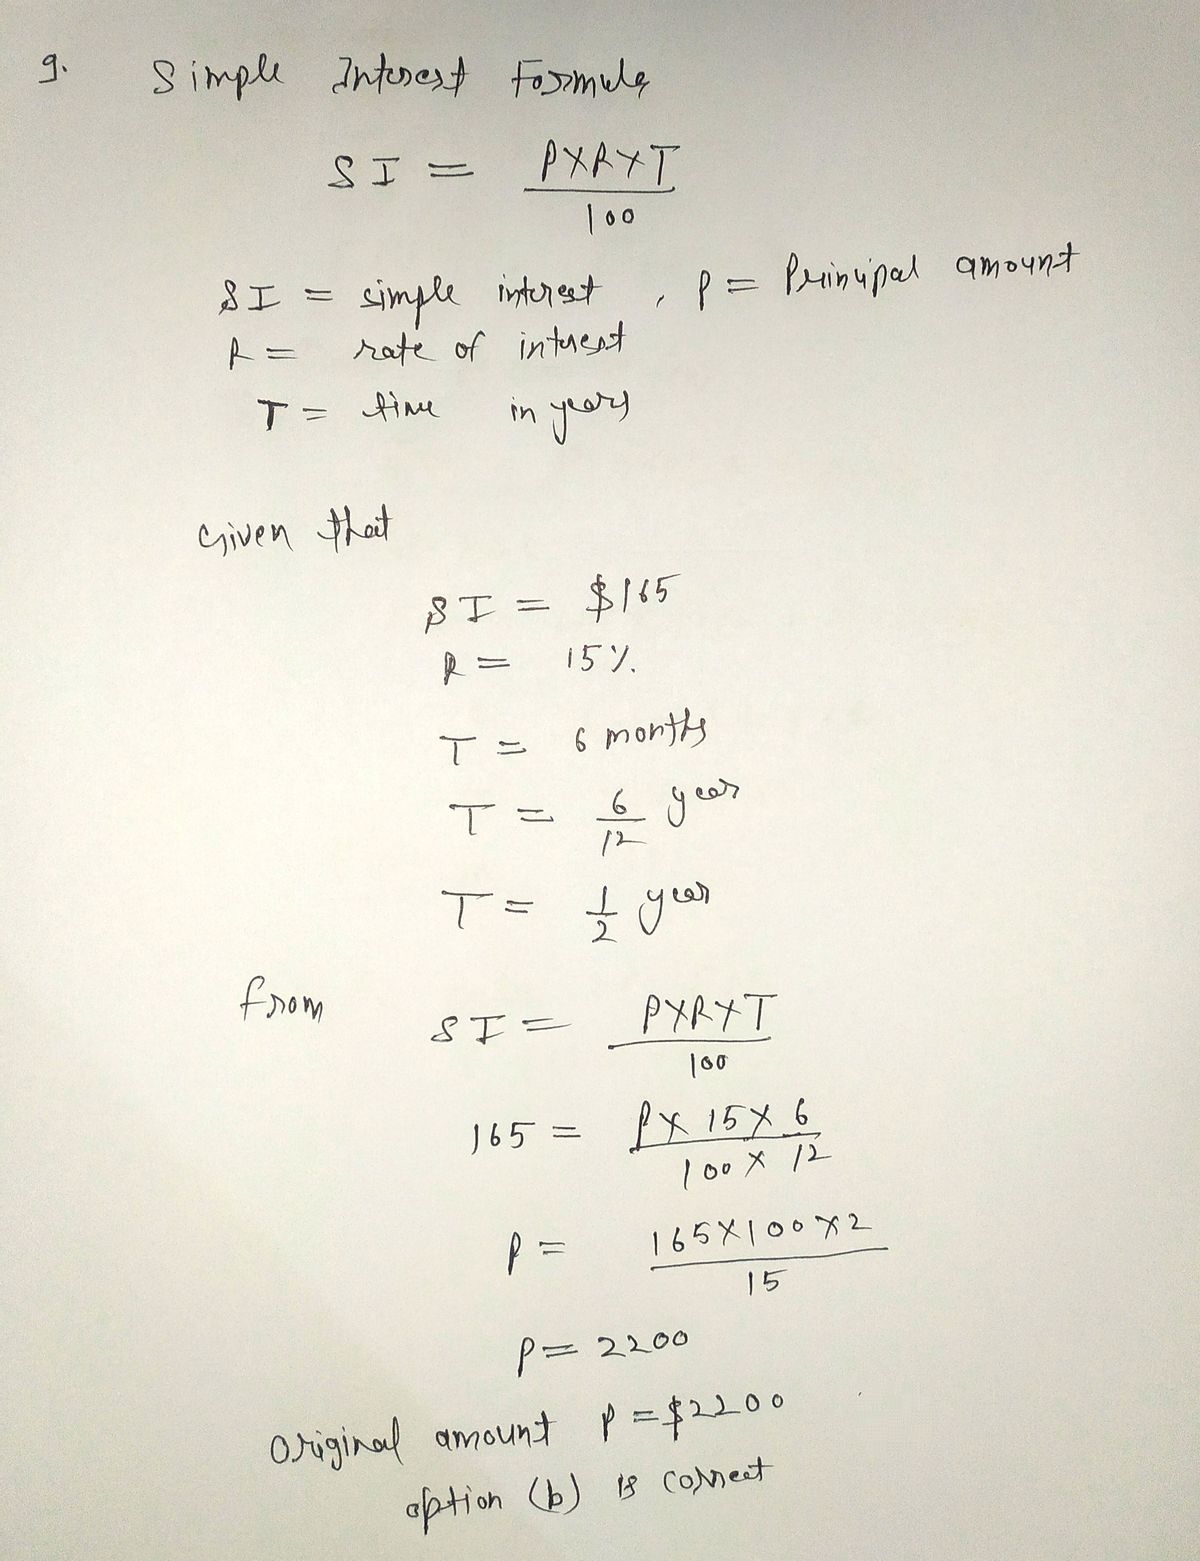 9. Simple Interest Formula
SI = P×R×T / 100
SI = simple interest , P = Principal amount
R = rate of interest
T = time in years
Given that
SI = $165
R = 15%
T = 6 months
T = 6/12 year
T = 1/2 year
from SI = P×R×T / 100
165 = P× 15× 6 / 100 × 12
P = 165×100×2 / 15
P = 2200
Original amount P = $2200
option (b) is correct